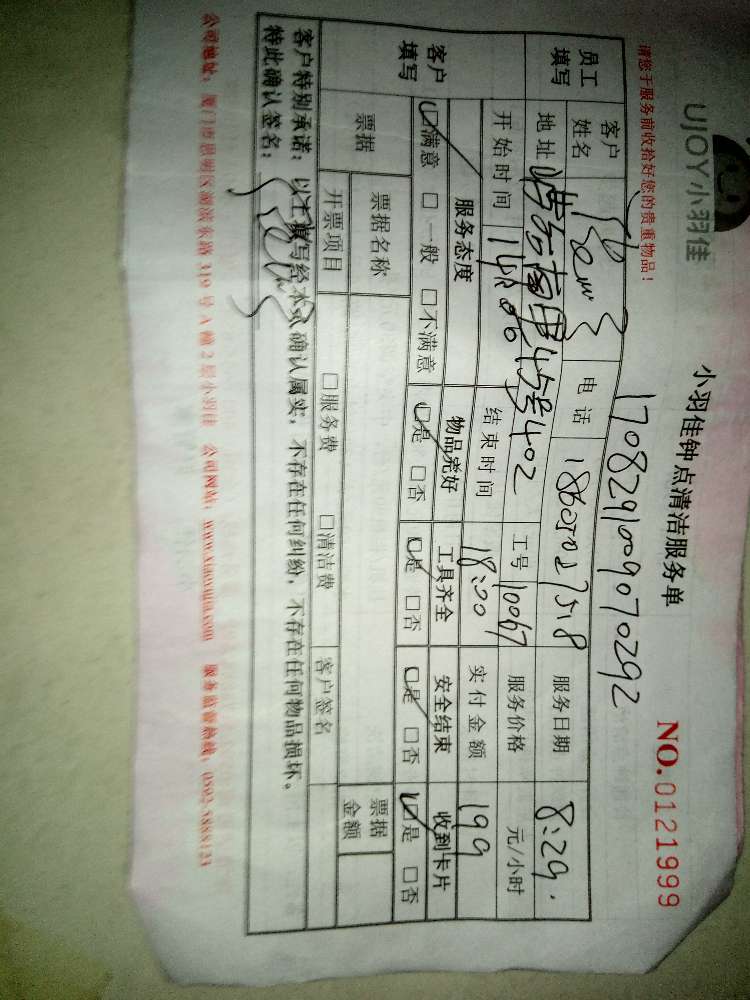 UJOY小羽佳
小羽佳钟点清洁服务单
NO.0121999
请您于服务前收拾好您的贵重物品！
1708291009070292
员工填写 客户姓名 电话 服务日期 8:29.
地址 45号402 工号 10067 服务价格 元/小时
开始时间 14:00 结束时间 18:00 实付金额 199
客户填写 服务态度 物品完好 工具齐全 安全结束 收到卡片
☑满意 □一般 □不满意 ☑是 □否 ☑是 □否 ☑是 □否 ☑是 □否
票据 票据名称 票据金额
开票项目 □服务费 □清洁费 客户签名
客户特别承诺：以上填写经本人确认属实，不存在任何纠纷，不存在任何物品损坏。
特此确认签名：
公司地址：厦门市思明区湖滨东路319号A幢2层小羽佳 公司网站：www.xiaoyujia.com 服务监督热线：0592-5888123